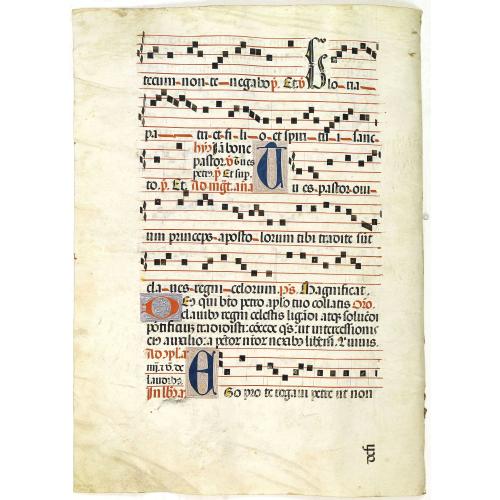 tecum non te negabo ꝟ. Et ꝟ Glo ria
pa tri et fi lio et spiritu i sanc
hȳs Jā bone
pastor ꝟ oues
petre ꝟ Et sup
to ꝟ. Et Ad mgt. aña A ues pastor oui
um princeps aposto lorum tibi tradite sūt
cla ues regni celorum. ps. Magnificat.
D Eus qui bto petro aplo tuo collatis Oro.
clauibus regni celestis ligādi atqꝫ soluēdi
pontificiuꝫ tradidisti: cōcede qs: ut intercessionis
eius auxilio: a pctor nror nexibꝫ liberem. Qui uiuis.
laudibꝫ.
E Go pro te rogaui petre ut non